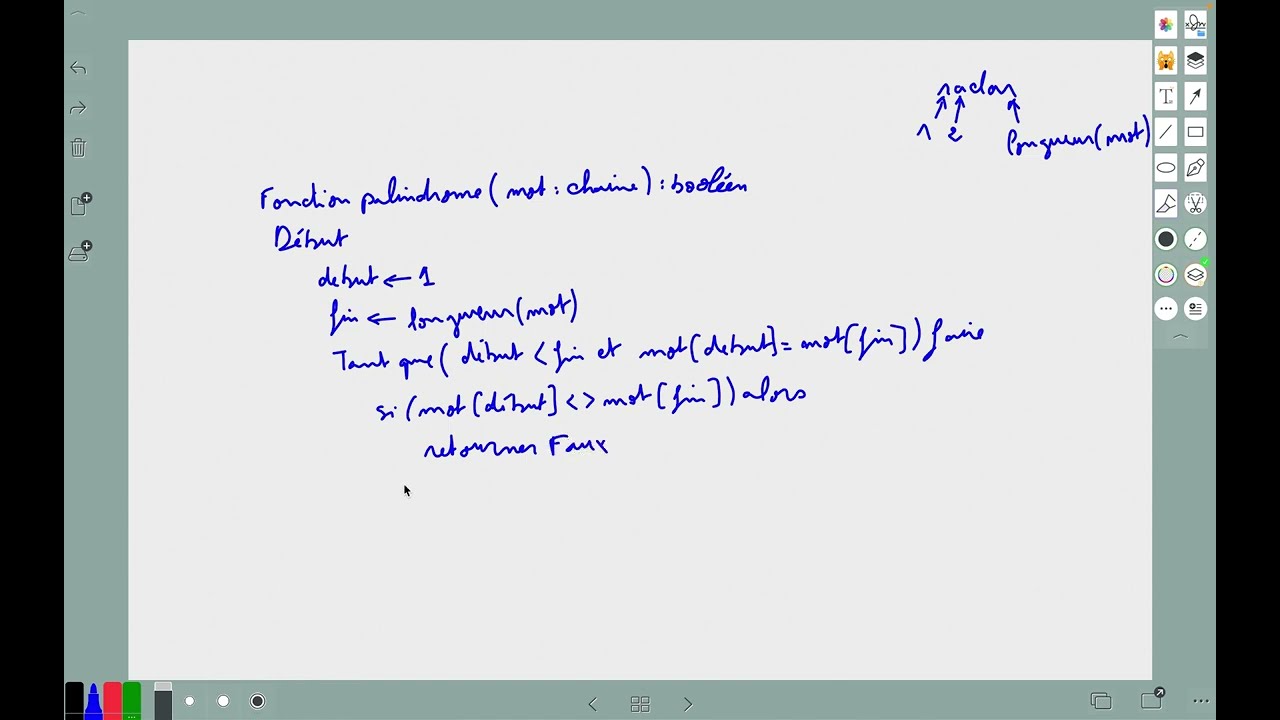 radar
1 2 longueur(mot)
Fonction palindrome(mot : chaine) : booléen
Début
debut ← 1
fin ← longueur(mot)
Tant que(début < fin et mot[debut] = mot[fin]) faire
si(mot[début] <> mot[fin]) alors
retourner Faux